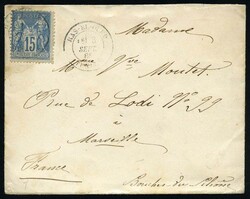 15
Madame
Mme Vve Moutet
Rue de Lodi No 99
à
Marseille
France
Bouches du Rhône